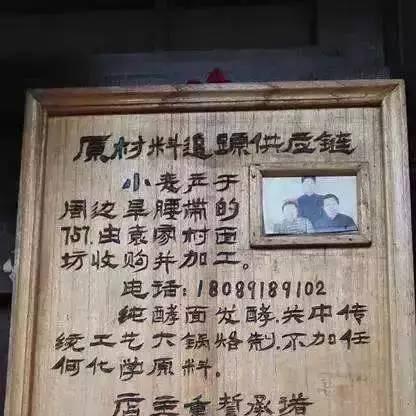 原材料追踪供应链
小麦产于
周边旱腰带的
757.由袁家村面
坊收购并加工。
电话:18089189102
纯酵面发酵.关中传
统工艺大锅烙制.不加任
何化学原料。
店主重新承诺